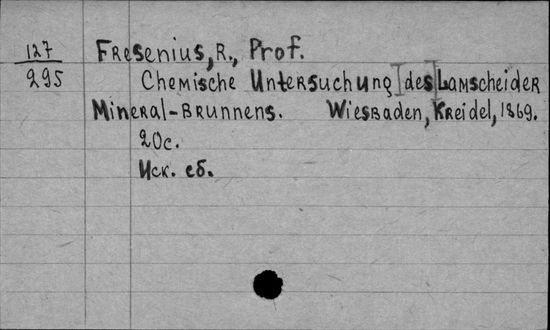 127 Fresenius, R., Prof.
295 Chemische Untersuchung des Lamscheider
Mineral-Brunnens. Wiesbaden, Kreidel, 1869.
20c.
Иск. сб.